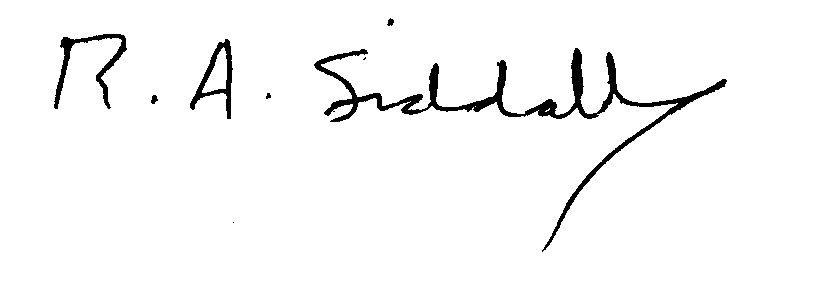 R. A. Siddall